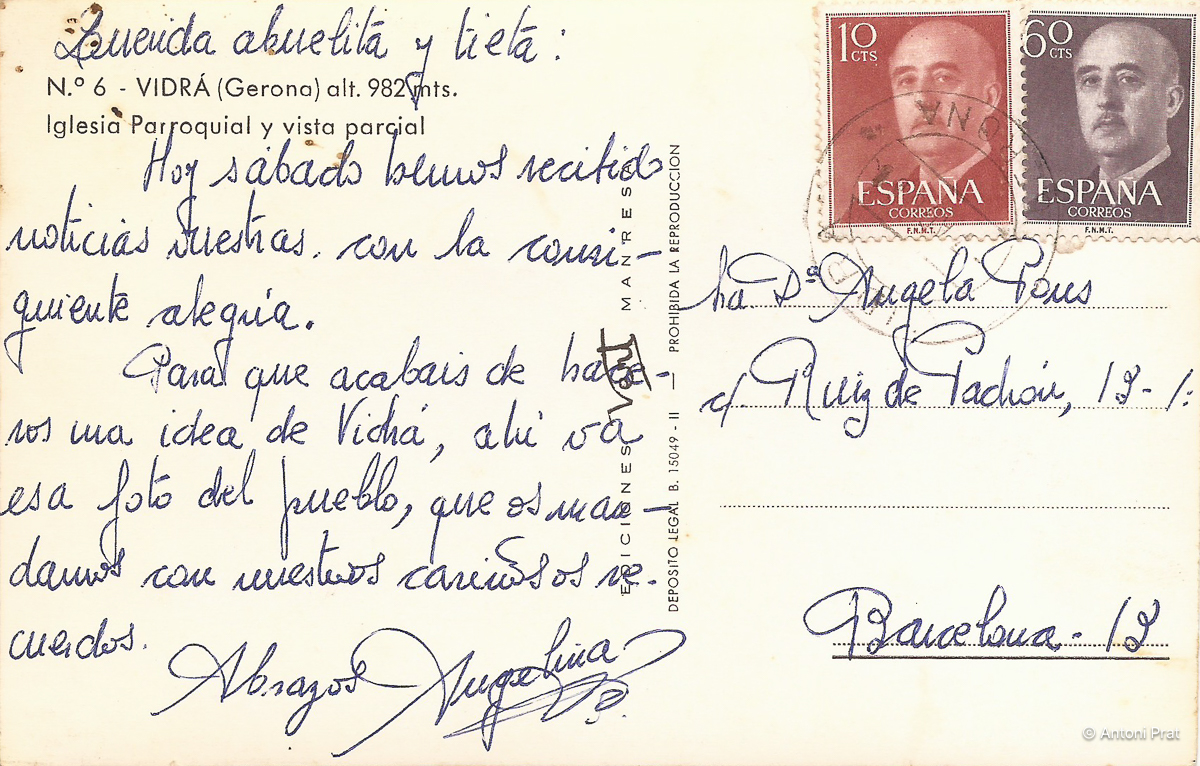 Querida abuelita y tieta:
N.º 6 - VIDRÁ (Gerona) alt. 982 mts.
Iglesia Parroquial y vista parcial
Hoy sábado hemos recibido
noticias vuestras. con la consi-
guiente alegría.
Para que acabais de hace-
ros una idea de Vidrá, ahí va
esa foto del pueblo, que os man-
damos con nuestros cariñosos re-
cuerdos.
Abrazos Angelina
EDICIONES MANRESA
DEPOSITO LEGAL B. 15049 - II — PROHIBIDA LA REPRODUCCION
10 CTS
ESPAÑA
CORREOS
F.N.M.T.
60 CTS
ESPAÑA
CORREOS
F.N.M.T.
Sra Dª Angela Pons
c/. Ruiz de Padrón, 13-1º
Barcelona - 13
© Antoni Prat